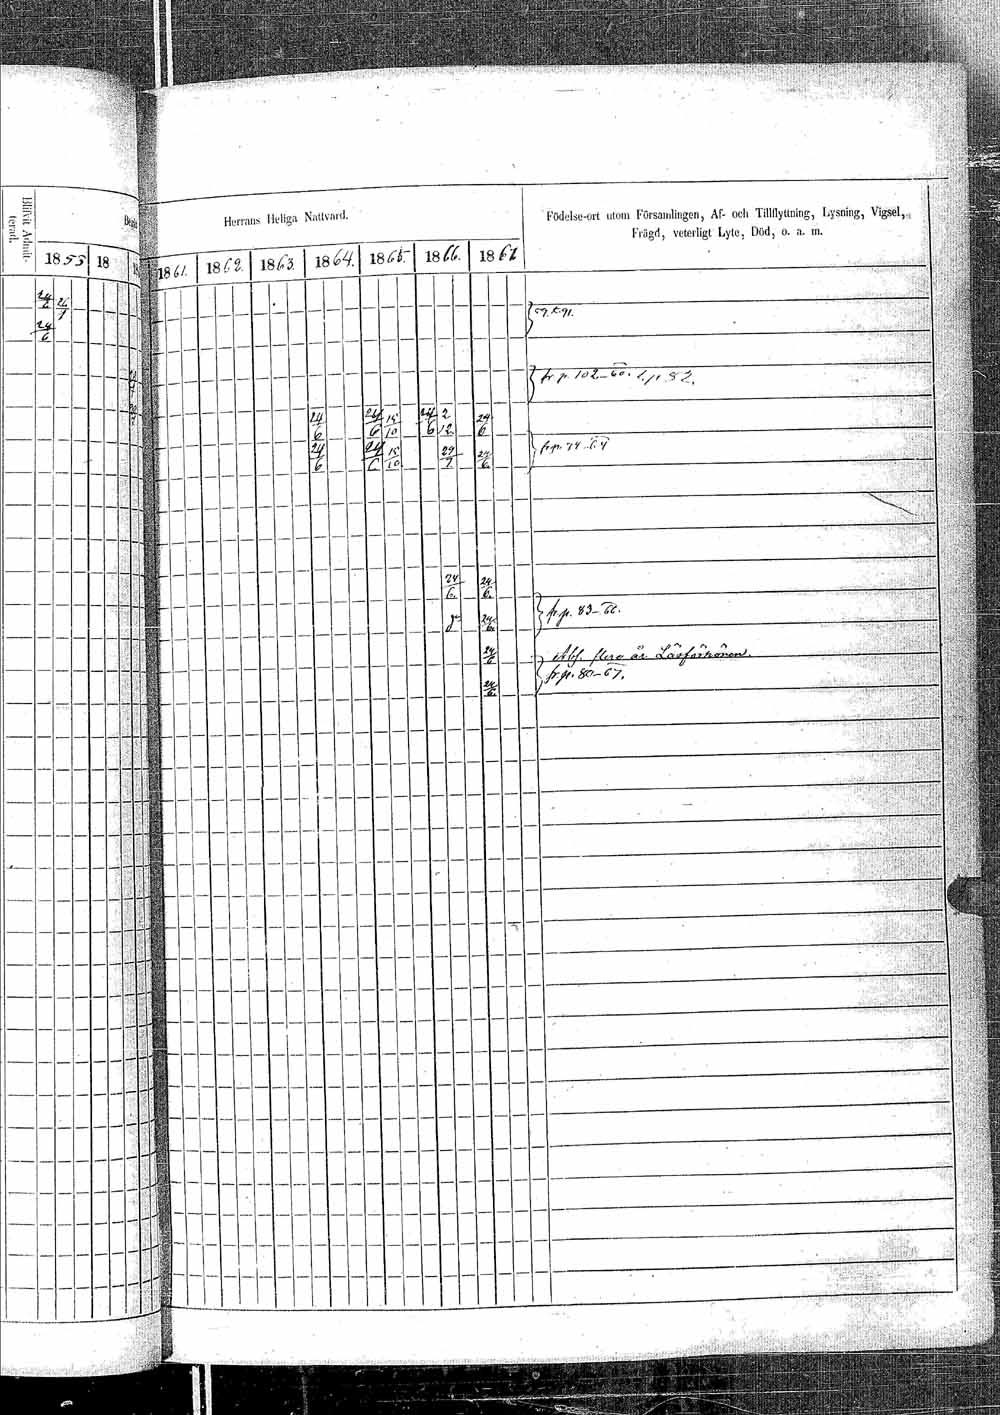 Blifvit Admit-
terad.
1853 18
Herrans Heliga Nattvard.
Födelse-ort utom Församlingen, Af- och Tillflyttning, Lysning, Vigsel,
Frägd, veterligt Lyte, Död, o. a. m.
1861. 1862. 1863. 1864. 1865. 1866. 1867
24/6 26/1
24/6
fr. p. 102-60. 52.
24/6 24/6 15/10 24/6 2/12 24/6
24/6 24/6 15/10 24/7 24/6
fr. p. 74-64
24/6 24/6
24/6
fr. p. 83-66.
24/6
flera år
24/6
fr. p. 80-67.